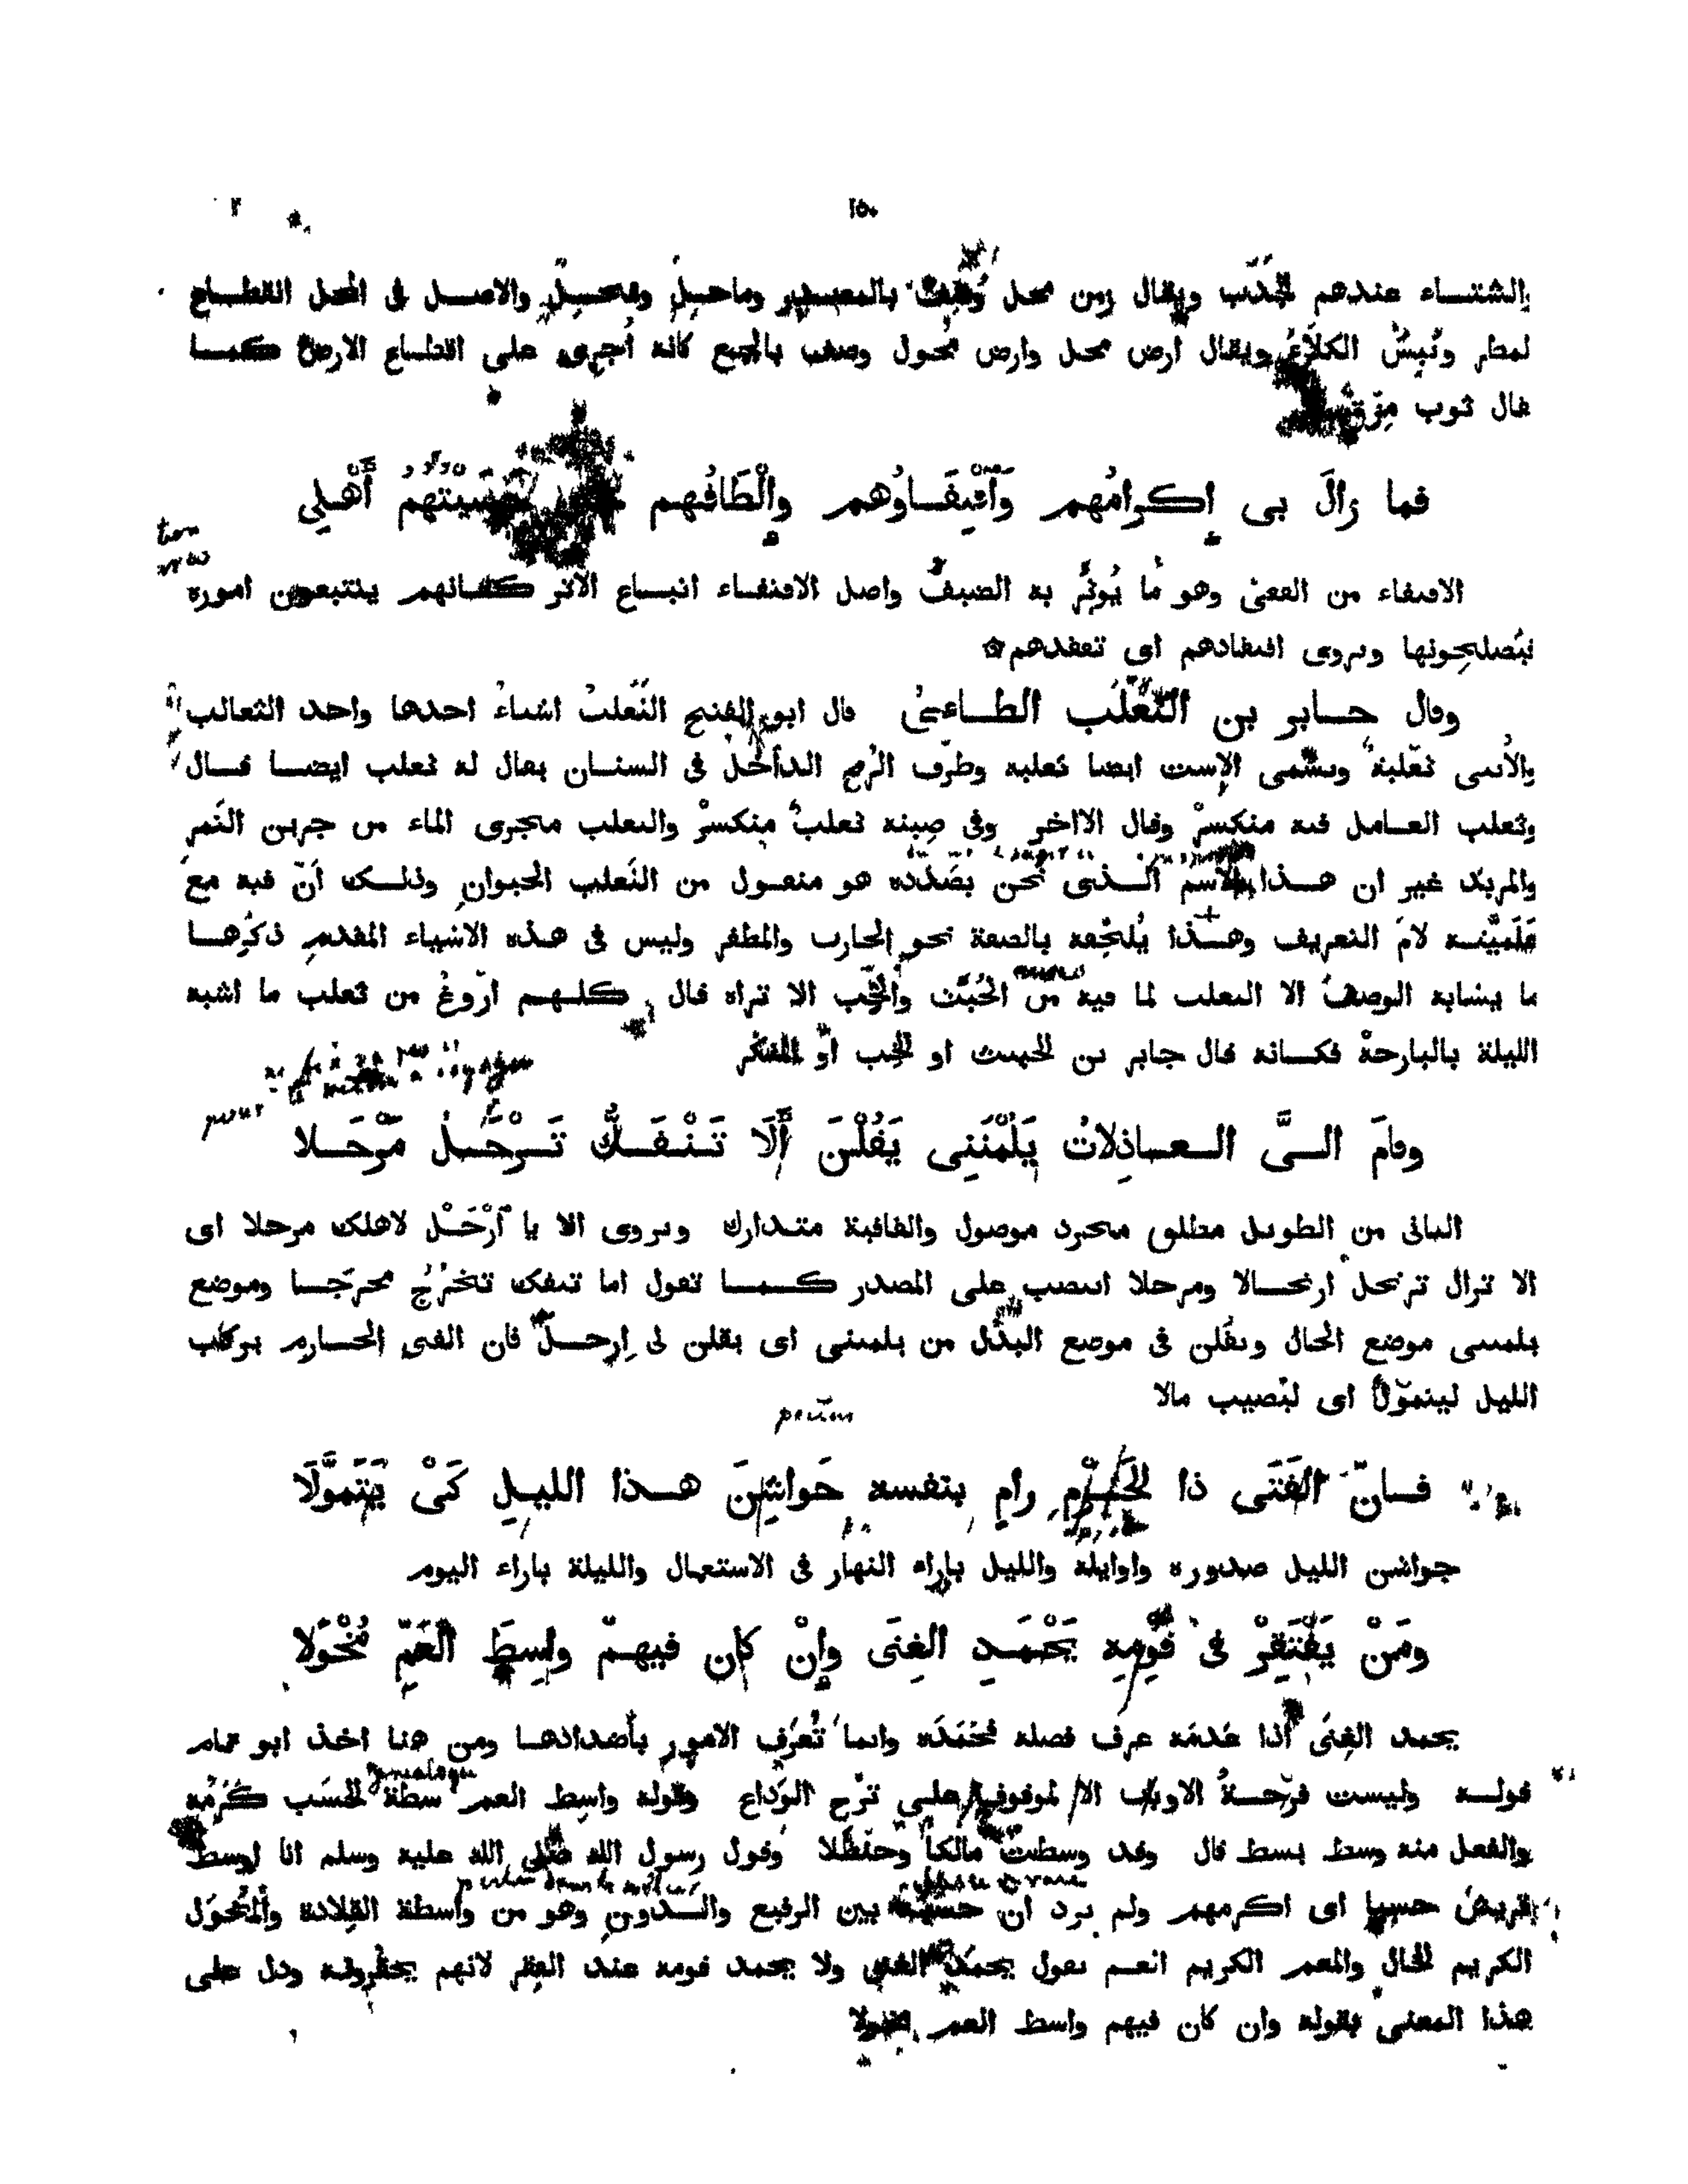 ١٥٠
الشتـاء عندهم الجدب ويقال زمن محل وصف بالمصدر وماحل وممحل والاصـل فى المحل انقطـاع
لمطر ويُبس الكلأ ويقال ارض محل وارض محول وصف بالجمع كانه أجرى على اقتطاع الارض كمـا
قال ثوب مزق
فما زالَ بى إكرامُهم وَاقْتِفَاوُهم وإلْطَافُهم حَسِبْتُهُمُ أَهْلِي
الاقتفاء من القفى وهو ما يُوثَر به الضيف واصل الاقتفاء اتبـاع الاثر كـانهم يتتبعون اموره
فيُصلِحونها ويروى افتقادهم اى تفقدهم
وقال جـابر بن الثَّعْلَب الطـاءىّ قال ابو الفتح الثَعْلب اشياء احدها واحد الثعالب
والأنثى ثعْلبة وتسمى الإست ايضا ثعلبة وطرَف الرُمح الداخل فى السنـان يقال له ثعلب ايضـا قـال
وثعلب العـامل فيه منكسرْ وقال الآخر وفى صِبنه ثعلبٌ منكسرْ والثعلب مجرى الماء من جرين التَمر
والمربد غير ان هـذا الاسم الـذى نحن بصَدَده هو منقول من الثَعلب الحيوان وذلـك أنّ فيه مع
عَلَمِيَّتـه لامَ التعريف وهـذا يُلحِقه بالصفة نحو الحارث والمظفر وليس فى هذه الاشياء المقدم ذكرهـا
ما يشابه الوصف الا الثعلب لما فيه من الخُبْث والخِبّ الا تراه قال كلـهـم اروَغُ من ثعلب ما اشبه
الليلة بالبارحهْ فكـانه قال جابر بن الخبيث او الخِب او المنكر
وقامَ الـىَّ الـعـاذِلاتُ يَلُمْنَنِى يَقُلْنَ أَلَا تَـنْـفَـكُّ تَـرْحَـلُ مَرْحَـلا
الثانى من الطويل مطلق مجرد موصول والقافية متـدارك ويروى الا يا ٱرْحَـلْ لاهلك مرحلا اى
الا تزال ترتحل ارتحـالا ومرحلا انتصب على المصدر كـمـا تقول اما تنفك تخرُج مخرَجـا وموضع
يلمننى موضع الحال ويقُلن فى موضع البدَل من يلمننى اى يقلن لى ارحـل فان الفتى الحـازم يركب
الليل ليتموّل اى ليُصيب مالا
فـانّ الفَتَى ذا الحَـزْمِ رامٍ بنفسه جَواشِنَ هـذا الليـلِ كَىْ يَتَمَوَّلَا
جواشن الليل صدوره واوايله والليل بازاء النهار فى الاستعمال والليلة بازاء اليوم
ومَنْ يَفْتَقِرْ فى قَوْمِهِ يَحْمَـدِ الغِنَى وإنْ كان فيهـمْ واسِطَ العَمِّ مُخْوَلا
يحمد الغِنَى اذا عَدمَه عرف فضله فحَمَدَه وانما تُعرَف الامور بأضدادهـا ومن هنا اخذ ابو تمام
قولـه وليست فرْحـةُ الاوبات الا لموقوف على ترَح الوَداع وقوله واسط العم سِطة الحَسَب كَرَمُه
والفعل منه وسط يسط قال وقد وسطت مالكا وحنظلا وقول رسول الله صلى الله عليه وسلم انا اوسط
قريش حسبا اى اكرمهم ولم يرد ان حسبه بين الرفيع والـدون وهو من واسطة القِلادة والمُخْوَل
الكريم الخال والمعم الكريم العـم يقول يحمد الغنى ولا يحمد قومه عند الفقر لانهم يحقرونه ودل على
هذا المعنى بقوله وان كان فيهم واسط العم مخولا